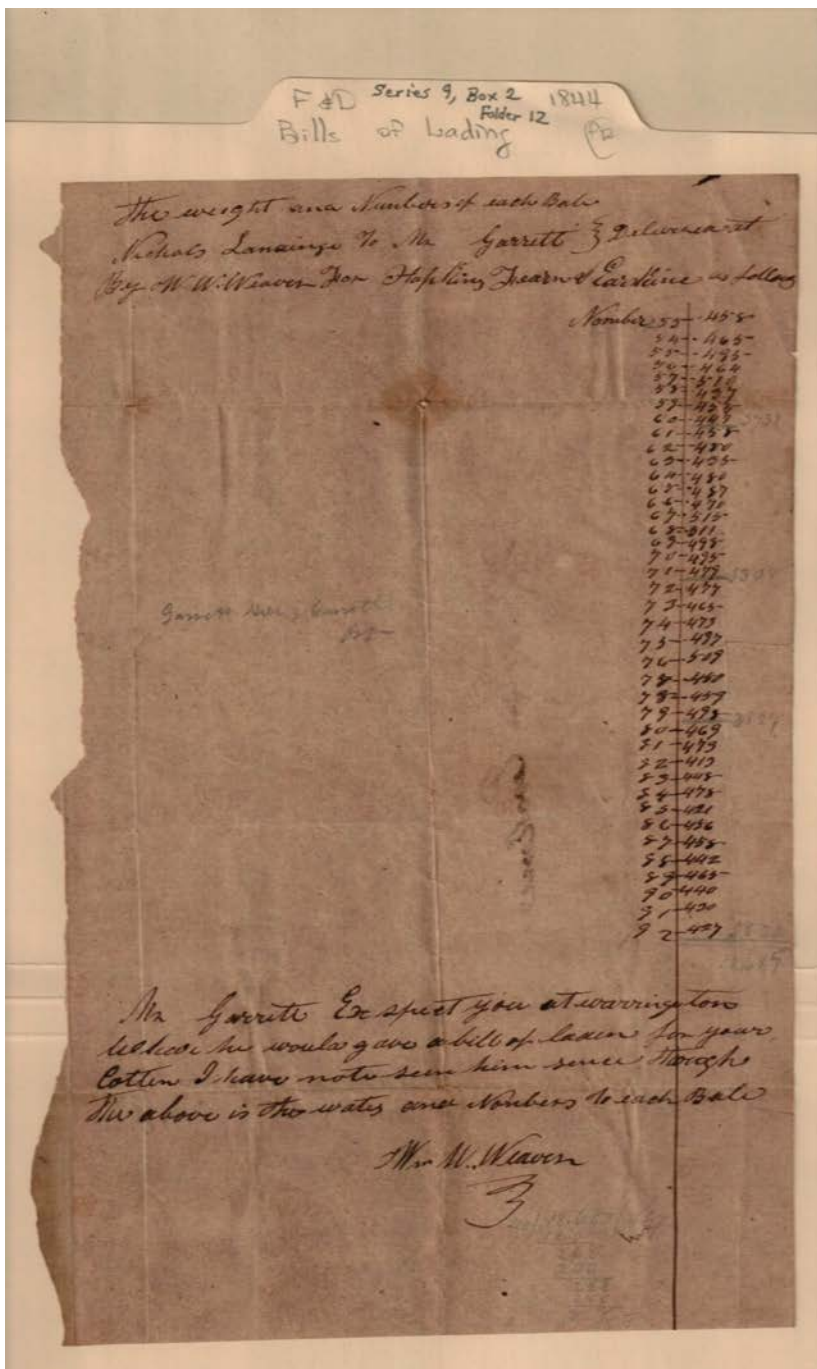 F&D Series 9, Box 2 1844
Folder 12
Bills of Lading
The weight and Numbers of each Bale
Nichols Lansinge To Mr Garrett } Delivered at
By W. W. Weaver For Hopkins Fearn & Earskine as follows
Nomber 53 - 458
54 - 465
55 - 485
464
57 - 510
58 - 437
59
60
61 - 458
62 - 480
63 - 435
64 - 480
65 - 487
66 - 470
67 - 515
68 - 511
69 - 498
70 - 495
71 - 479
72 - 477
73 - 465
74 - 473
75 - 487
76 - 509
78 - 450
78 - 459
79 - 498
80 - 469
81 - 473
82 - 413
83 - 448
84 - 478
85 - 421
86 - 456
87 - 458
88 - 442
89 - 465
90 - 440
91 - 430
92 - 427
Garrett
Mr Garrett Exspect you at warrington
he would gave a bill of laden for your
Cotten I have note seen him sence though
The above is the wates and Nombers to each Bale
Wm W. Weaver